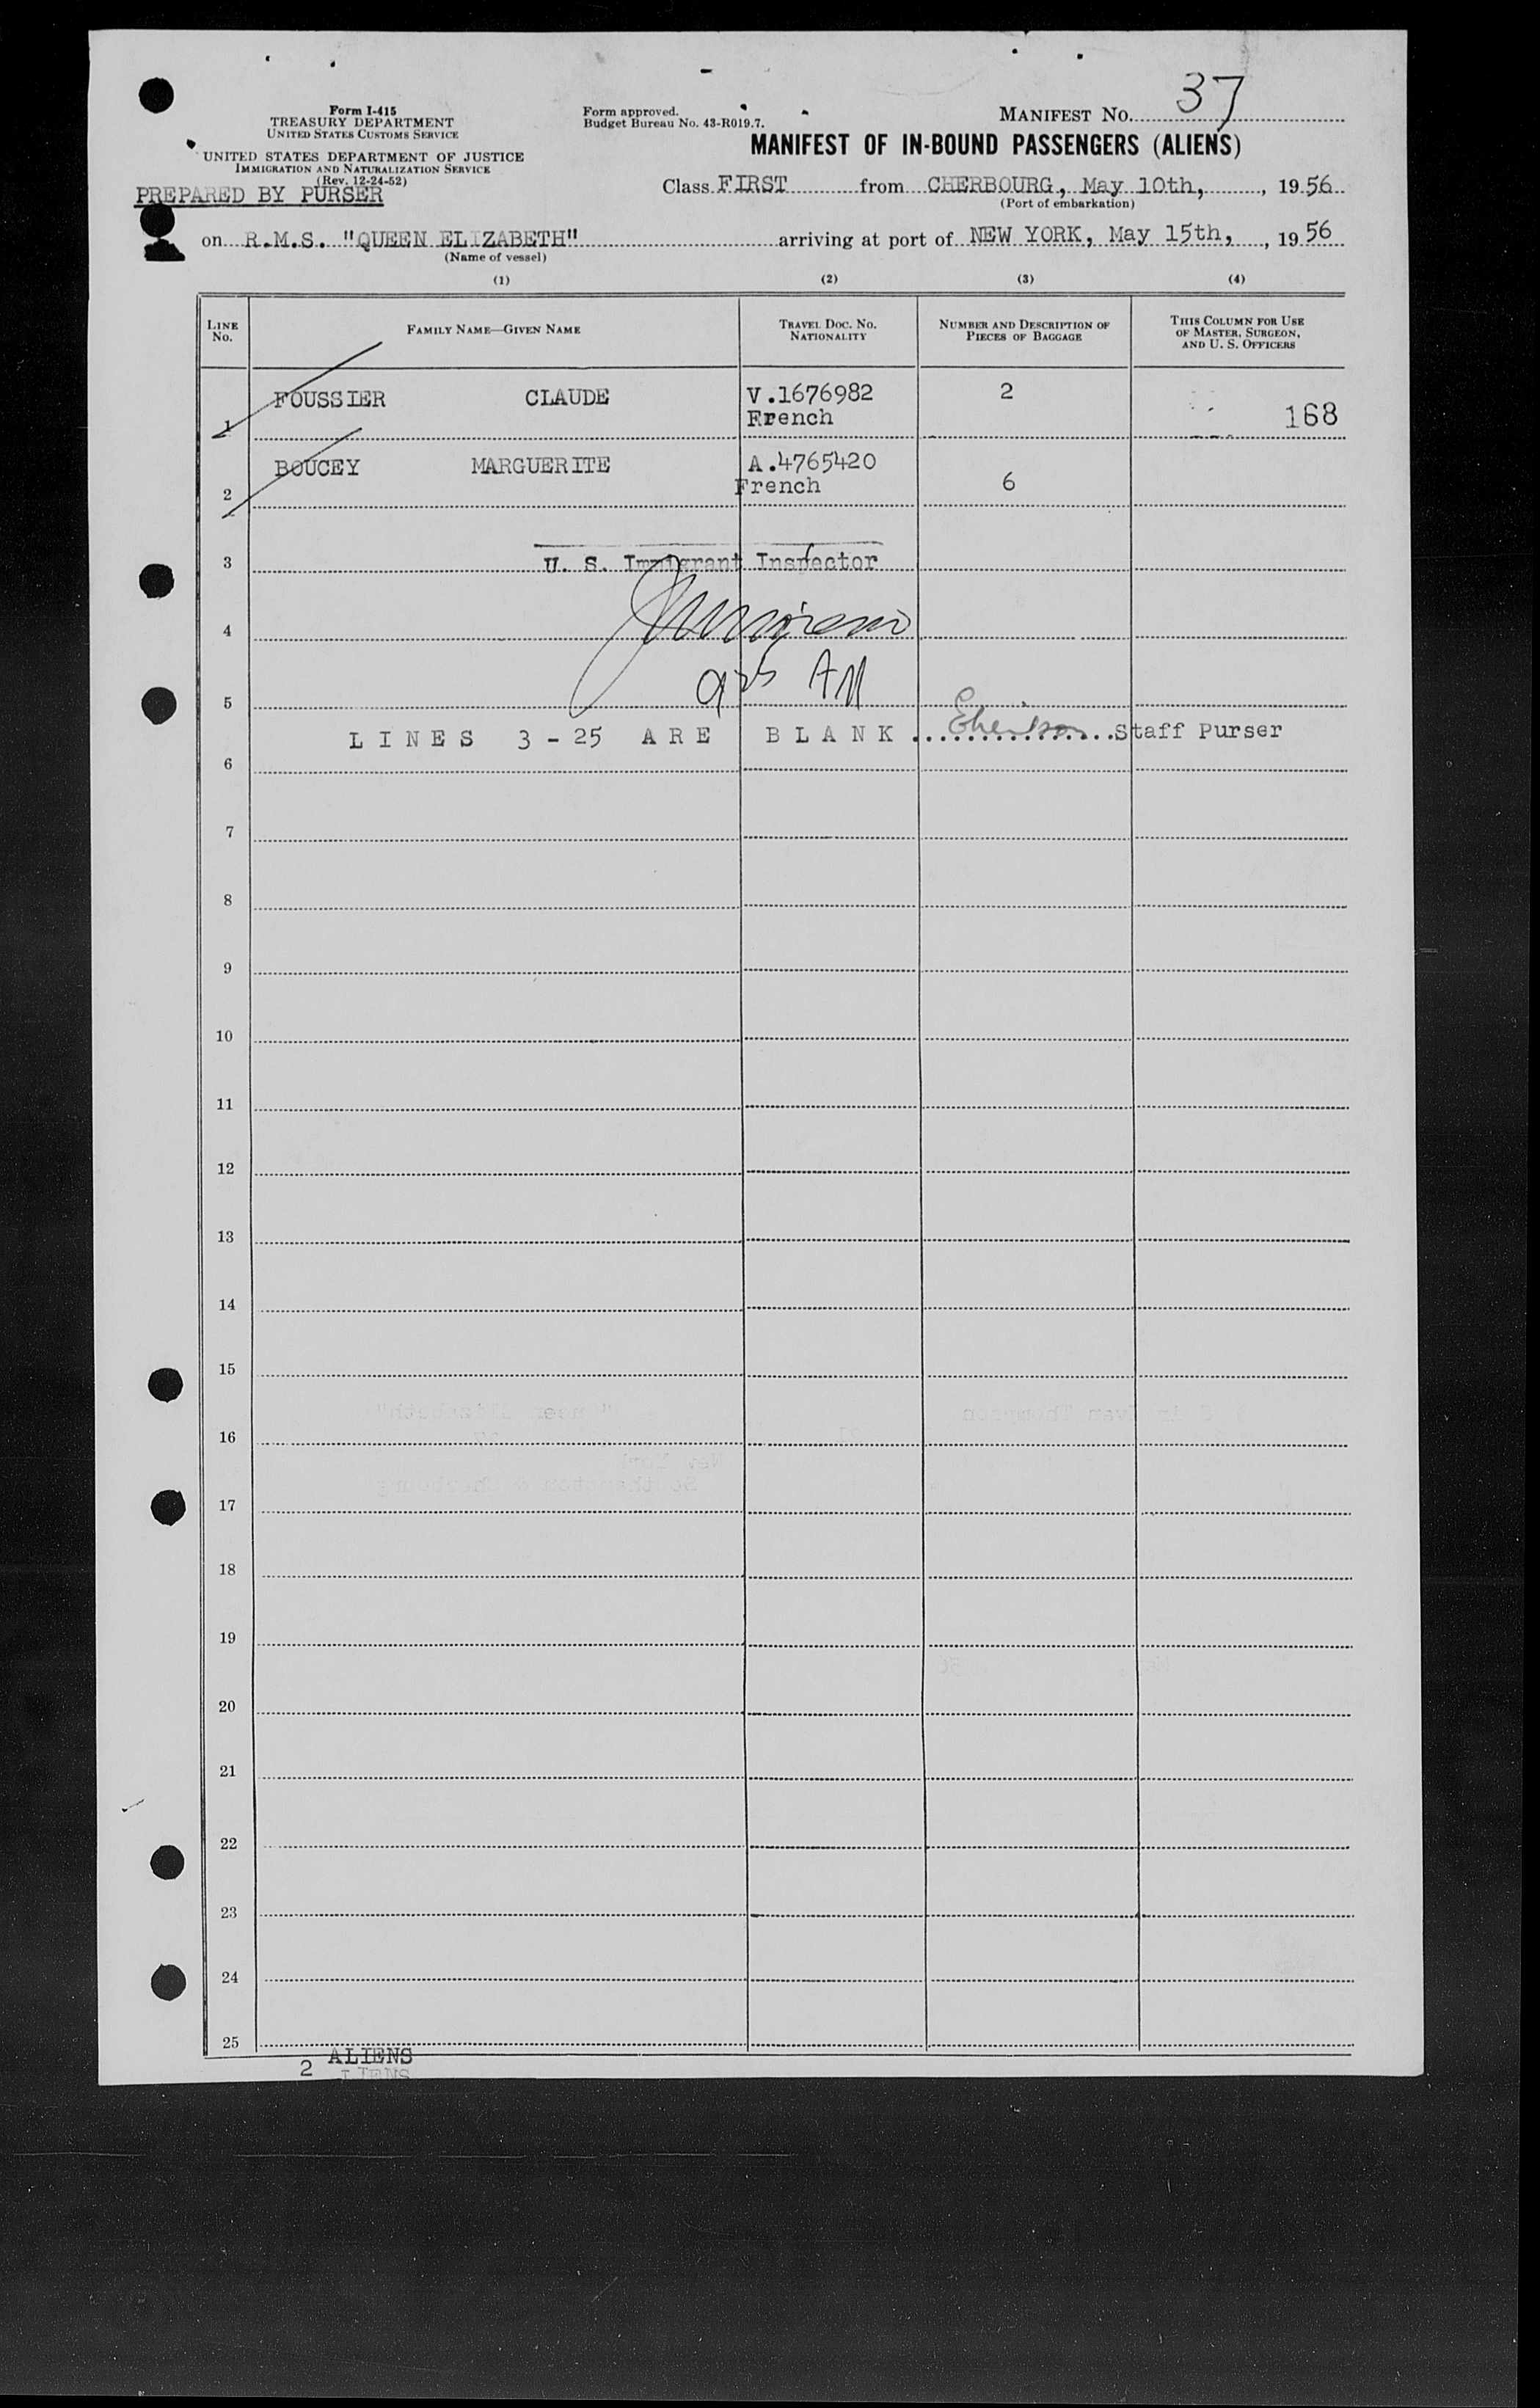 Form I-415
TREASURY DEPARTMENT
UNITED STATES CUSTOMS SERVICE
UNITED STATES DEPARTMENT OF JUSTICE
IMMIGRATION AND NATURALIZATION SERVICE
(Rev. 12-24-52)
PREPARED BY PURSER
Form approved.
Budget Bureau No. 43-R019.7.
MANIFEST NO. 37
MANIFEST OF IN-BOUND PASSENGERS (ALIENS)
Class FIRST from CHERBOURG, May 10th, , 1956
(Port of embarkation)
on R.M.S. "QUEEN ELIZABETH" arriving at port of NEW YORK, May 15th, , 1956
(Name of vessel)
(1) (2) (3) (4)
LINE NO. FAMILY NAME—GIVEN NAME TRAVEL DOC. NO. NATIONALITY NUMBER AND DESCRIPTION OF PIECES OF BAGGAGE THIS COLUMN FOR USE OF MASTER, SURGEON, AND U. S. OFFICERS
1 FOUSSIER CLAUDE V.1676982 French 2 168
2 BOUCEY MARGUERITE A.4765420 French 6
3 U. S. Immigrant Inspector
4
5
LINES 3-25 ARE BLANK Staff Purser
6
7
8
9
10
11
12
13
14
15
16
17
18
19
20
21
22
23
24
25
2 ALIENS